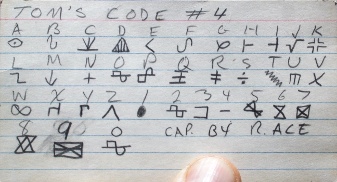 TOM'S CODE #4
A B C D E F G H I J K
L M N O P Q R S T U V
W X Y Z 1 2 3 4 5 6 7
8 9 0 CAP. BY P. ACE